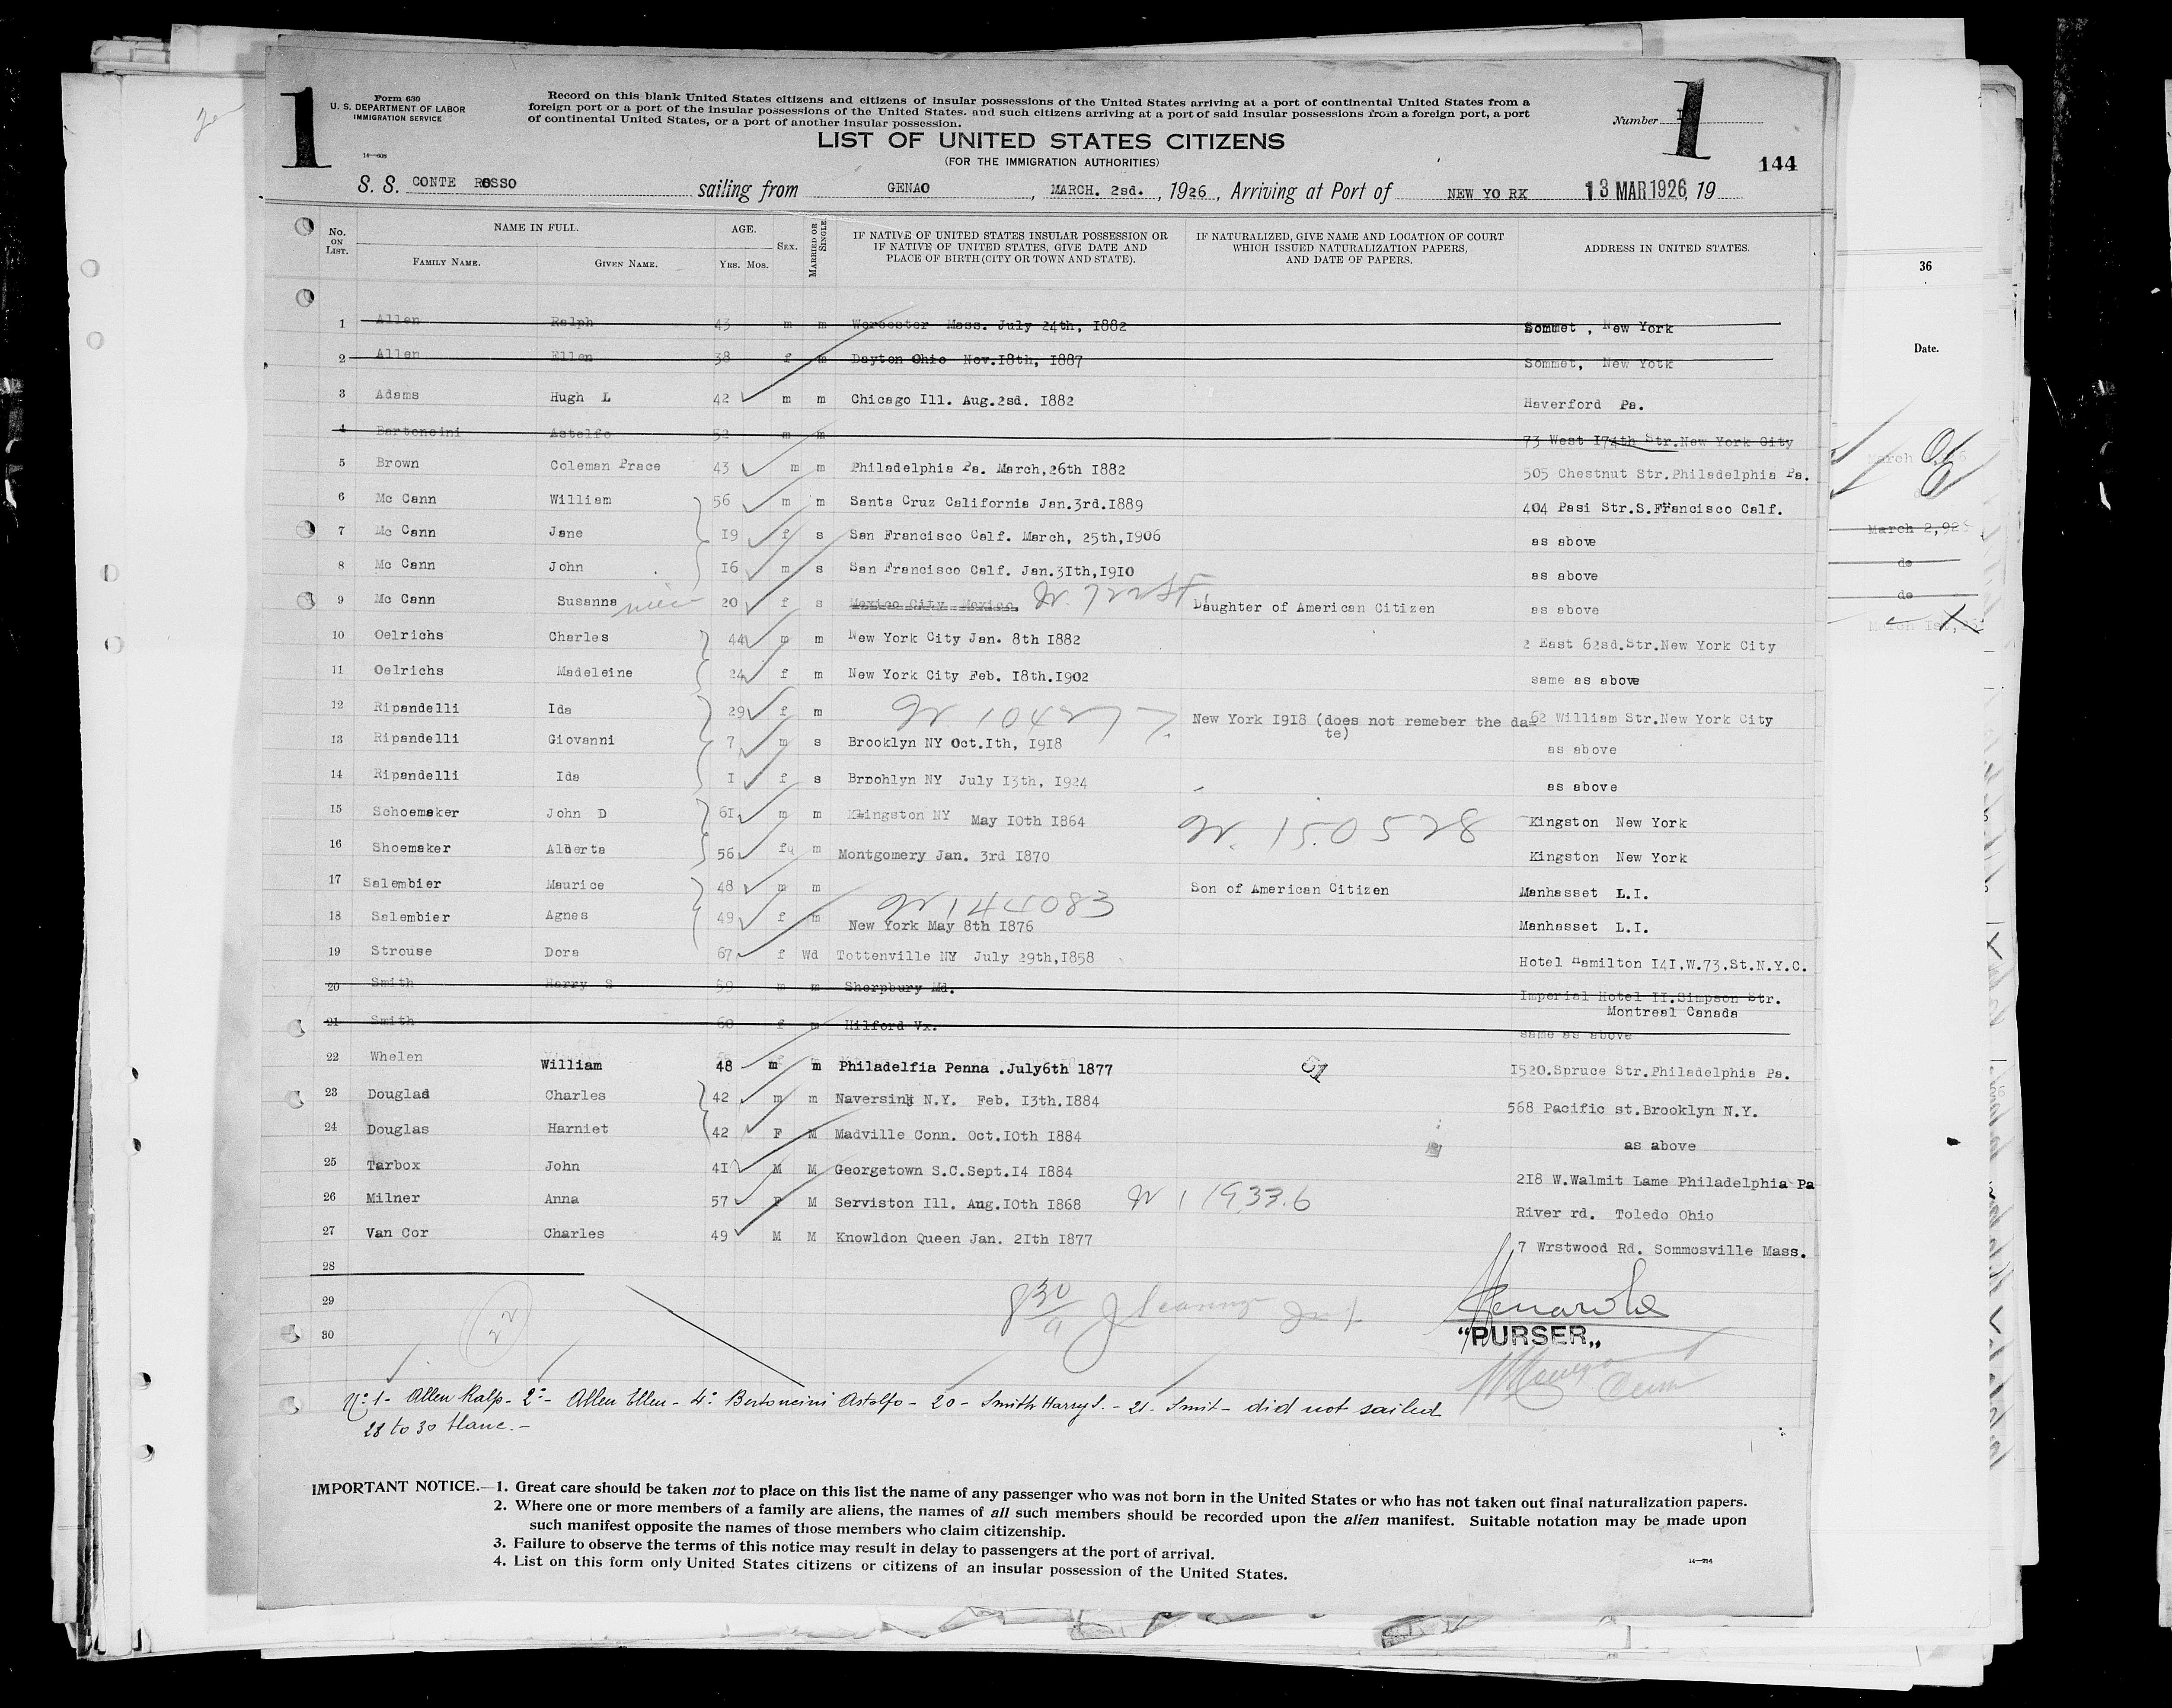 1
Form 630
U. S. DEPARTMENT OF LABOR
IMMIGRATION SERVICE
14—608
Record on this blank United States citizens and citizens of insular possessions of the United States arriving at a port of continental United States from a
foreign port or a port of the insular possessions of the United States, and such citizens arriving at a port of said insular possessions from a foreign port, a port
of continental United States, or a port of another insular possession.
LIST OF UNITED STATES CITIZENS
(FOR THE IMMIGRATION AUTHORITIES)
Number
1
144
S. S. CONTE ROSSO sailing from GENAO, MARCH. 2sd., 1926, Arriving at Port of NEW YO RK 13 MAR 1926, 19
No. ON LIST.
NAME IN FULL.
FAMILY NAME. GIVEN NAME.
AGE.
YRS. MOS.
SEX.
MARRIED OR SINGLE.
IF NATIVE OF UNITED STATES INSULAR POSSESSION OR
IF NATIVE OF UNITED STATES, GIVE DATE AND
PLACE OF BIRTH (CITY OR TOWN AND STATE).
IF NATURALIZED, GIVE NAME AND LOCATION OF COURT
WHICH ISSUED NATURALIZATION PAPERS,
AND DATE OF PAPERS.
ADDRESS IN UNITED STATES.
36
Date.
1 Allen Ralph 43 m m Worcester Mass. July 24th, I882 Sommet , New York
2 Allen Ellen 38 f m Dayton Ohio Nov.I8th, I887 Sommet, New Yotk
3 Adams Hugh L 42 m m Chicago Ill. Aug.2sd. I882 Haverford Pa.
4 Bertoncini Astolfo 52 m m 73 West I74th Str.New York City
5 Brown Coleman Prace 43 m m Philadelphia Pa. March,26th I882 505 Chestnut Str.Philadelphia Pa.
6 Mc Cann William 56 m m Santa Cruz California Jan.3rd.I889 404 Pasi Str.S.FRancisco Calf.
7 Mc Cann Jane I9 f s San Francisco Calf. March, 25th,I906 as above
8 Mc Cann John I6 m s San Francisco Calf. Jan.3Ith,I9I0 as above
9 Mc Cann Susanna 20 f s Mexico City Mexico. Daughter of American Citizen as above
10 Oelrichs Charles 44 m m New York City Jan. 8th I882 2 East 62sd.Str.New York City
11 Oelrichs Madeleine 24 f m New York City Feb. I8th.I902 same as above
12 Ripandelli Ida 29 f m New York I9I8 (does not remeber the da= 62 William Str.New York City
te)
13 Ripandelli Giovanni 7 m s Brooklyn NY Oct.Ith, I9I8 as above
14 Ripandelli Ida I f s Brpohlyn NY July I3th, I924 as above
15 Schoemaker John D 6I m m Kingston NY May I0th I864 Kingston New York
16 Shoemaker Alberta 56 f m Montgomery Jan. 3rd I870 Kingston New York
17 Salembier Maurice 48 m m Son of American Citizen Manhasset L.I.
144083
18 Salembier Agnes 49 f m New York May 8th I876 Manhasset L.I.
19 Strouse Dora 67 f Wd Tottenville NY July 29th,I858 Hotel Hamilton I4I,W.73,St.N.Y.C.
20 Smith Harry S 59 m m Sherpbury Md. Imperial Hotel II.Simpson Str.
Montreal Canada
21 Smith 60 f m Hilford Vx. same as above
22 Whelen William 48 m m Philadelfia Penna .July6th 1877 I520.Spruce Str.Philadelphia Pa.
23 Douglas Charles 42 m m Naversink N.Y. Feb. I3th.I884 568 Pacific st.Brooklyn N.Y.
24 Douglas Harniet 42 F M Madville Conn. Oct.I0th I884 as above
25 Tarbox John 4I M M Georgetown S.C.Sept.I4 I884 2I8 W.Walmit Lame Philadelphia Pa
26 Milner Anna 57 F M Serviston Ill. Aug.I0th I868 River rd. Toledo Ohio
27 Van Cor Charles 49 M M Knowldon Queen Jan. 2Ith I877 7 Wrstwood Rd. Sommosville Mass.
28
29
30
"PURSER„
No 1- Allen Ralp- 2o- Allen Ellen- 4o Bertoncini Astolfo- 20- Smith Harry S.- 21- Smit- did not sailed
28 to 30 blanc.-
IMPORTANT NOTICE.—1. Great care should be taken not to place on this list the name of any passenger who was not born in the United States or who has not taken out final naturalization papers.
2. Where one or more members of a family are aliens, the names of all such members should be recorded upon the alien manifest. Suitable notation may be made upon
such manifest opposite the names of those members who claim citizenship.
3. Failure to observe the terms of this notice may result in delay to passengers at the port of arrival.
4. List on this form only United States citizens or citizens of an insular possession of the United States.